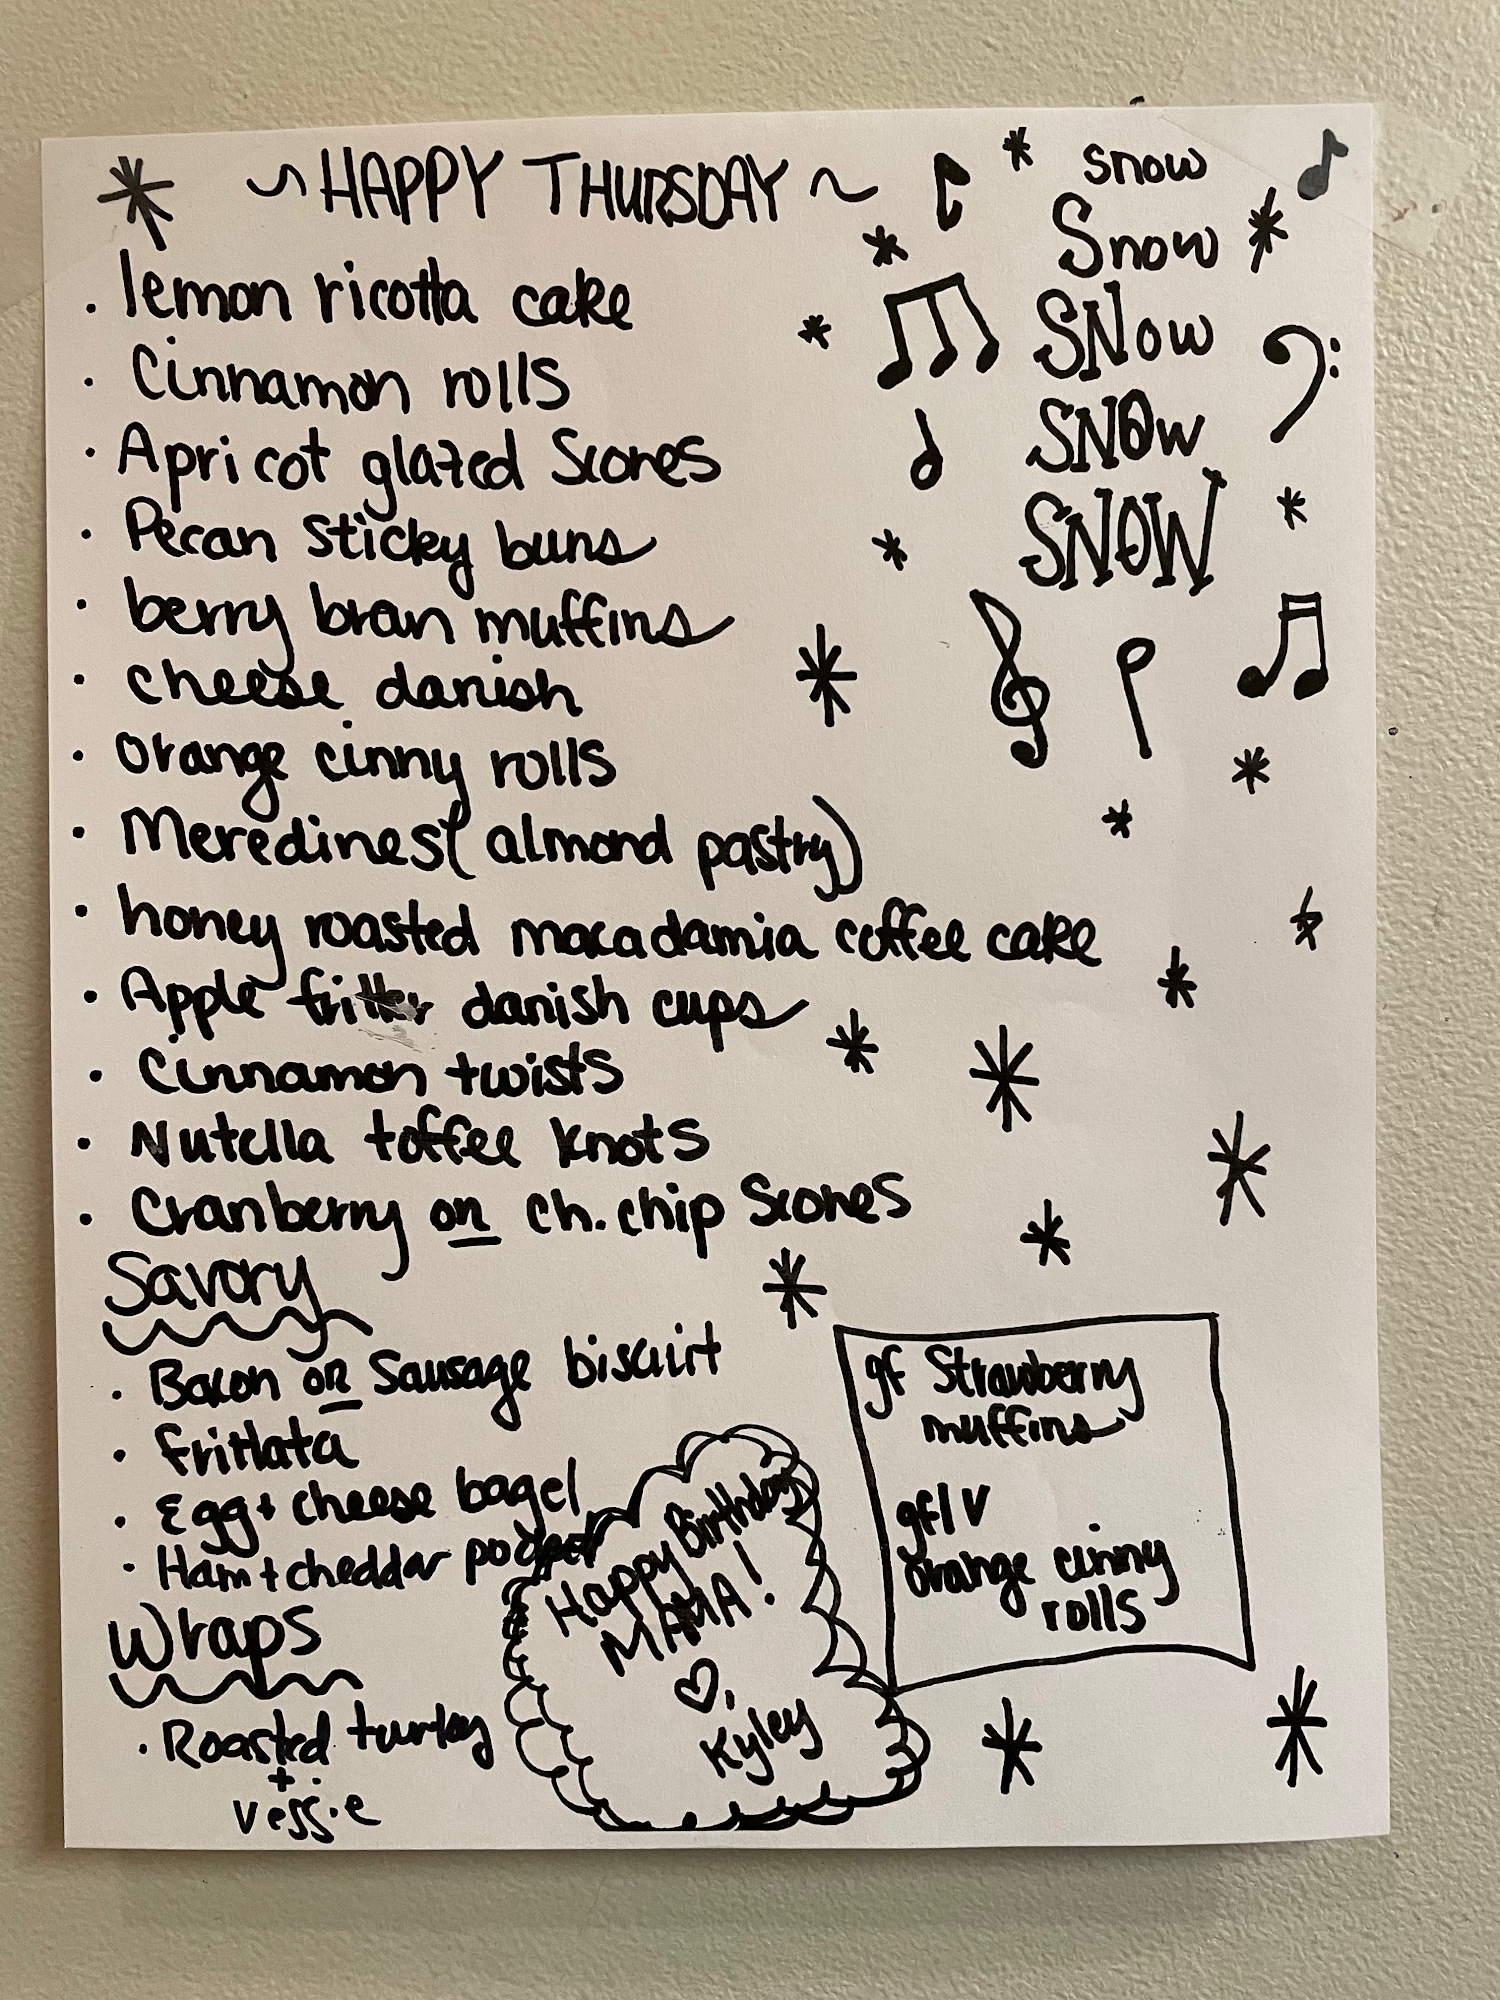 ~HAPPY THURSDAY~
. lemon ricotta cake
. Cinnamon rolls
. Apricot glazed Scones
. Pecan Sticky buns
. berry bran muffins
. cheese danish
. Orange cinny rolls
. Meredines (almond pastry)
. honey roasted macadamia coffee cake
. Apple fritter danish cups
. Cinnamon twists
. Nutella toffee knots
. Cranberry or ch. chip Scones
Savory
. Bacon or Sausage biscuit
. frittata
. Egg + cheese bagel
. Ham + cheddar pocket
Wraps
. Roasted turkey
+
veggie
snow
Snow
SNow
SNOw
SNOW
gf Strawberry
muffins
gf/V
orange cinny
rolls
Happy Birthday
MAMA!
♡,
Kyley